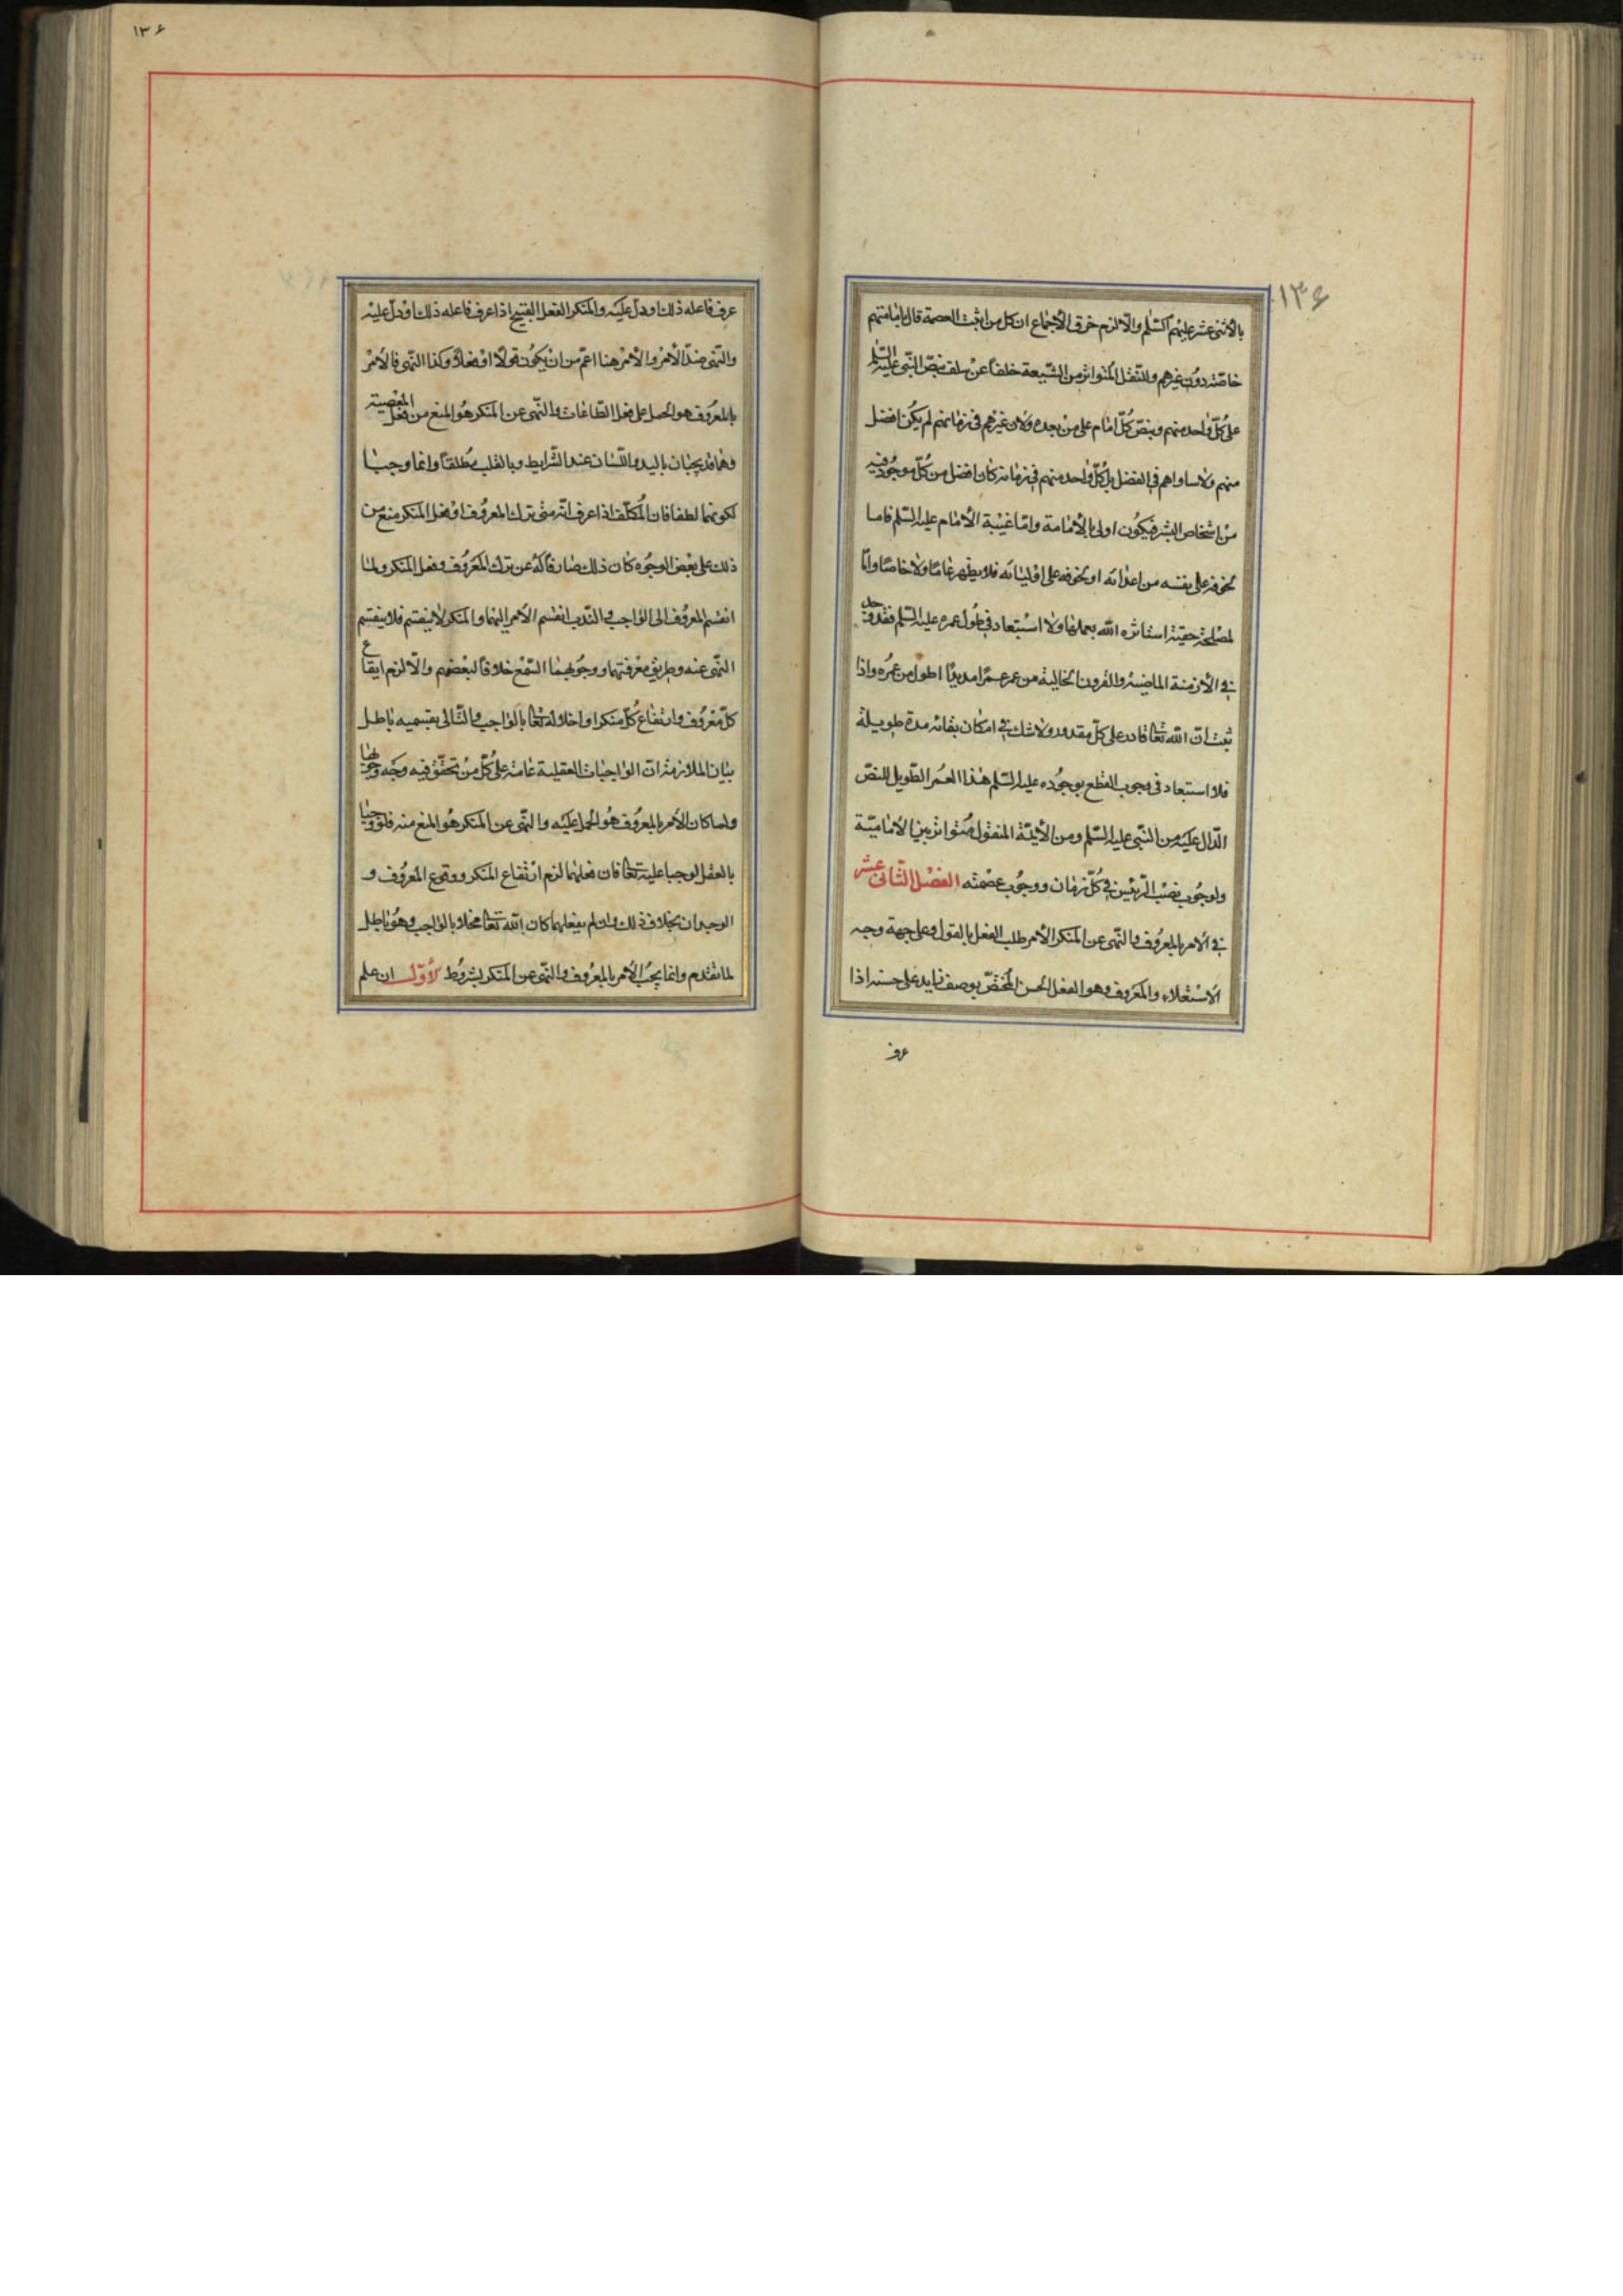 ١٣۶
١٣۶
بالأثنى عشر عليهم السّلم والّا لزم خرق الأجماع ان كل من اثبت العصمة قال بامامتهم
خاصّة دون غيرهم وللنّقل المتواتر من الشّيعة خلفاً عن سلف بنصّ النّبى عليه السّلم
على كلّ واحد منهم وبنصّ كلّ امام على من بعده ولان غيرهم فى زمانهم لم يكن افضل
منهم ولا ساواهم فى الفضل بل كلّ واحد منهم فى زمانه كان افضل من كلّ موجود فيه
من اشخاص البشر فيكون اولى بالأمامة وامّا غيبة الأمام عليه السّلم فاما
لخوفه على نفسه من اعدائه او لخوفه على اوليائه فلا يظهر عامّا ولا خاصّا وامّا
لمصلحة خفيّة استاثره الله بعملها ولا استبعاد فى طول عمره عليه السّلم فقد وجد
فى الأزمنة الماضية والقرون الخالية من عمر عمرًا مديدًا اطول من عمره واذا
ثبت انّ الله تعالى قادر على كلّ مقدور ولا شك فى امكان بقائه مدة طويلة
فلا استبعاد فى وجوب القطع بوجوده عليه السّلم هذا العمر الطّويل للنصّ
الدّال عليه من النّبى عليه السّلم ومن الأئمّة المنقول متواتر بين الاماميّة
ولوجوب نصب الرّئيس فى كلّ زمان ووجوب عصمته الفصل الثّانى عشر
فى الامر بالمعروف والنّهى عن المنكر الأمر طلب الفعل بالقول وعلى جهة وجه
الاستعلاء والمعروف وهو الفعل الحسن المختصّ بوصف زايد على حسنه اذا
عرف
عرف فاعله ذلك او دلّ عليه والمنكر الفعل القبيح اذا عرف فاعله ذلك او دلّ عليه
والنّهى ضدّ الأمر والأمر هنا اعمّ من ان يكون قولًا او فعلًا وكذا النّهى فالأمر
بالمعروف هو الحمل على فعل الطّاعات والنّهى عن المنكر هو المنع من فعل المعصية
وهما قد يجبان باليد واللّسان عند الشّرايط وبالقلب مطلقًا وانما وجبا
لكونهما لطفا فان المكلّف اذا عرف انّه متى ترك المعروف او فعل المنكر منع من
ذلك على بعض الوجوه كان ذلك صارفًا له عن ترك المعروف وفعل المنكر ولما
انقسم المعروف الى الواجب والنّدب انقسم الأمر اليهما والمنكر لا ينقسم فلا ينقسم
النّهى عنه وطريق معرفتهما ووجوبهما السّمع خلافًا لبعضهم والّا لزم ايقاع
كلّ معروف وارتفاع كلّ منكر او اخلاله تعالى بالواجب والتّالى بقسميه باطل
بيان الملازمة انّ الواجبات العقلية عامة على كلّ من تحقّق فيه وجه وجوبها
ولما كان الأمر بالمعروف هو الحمل عليه والنّهى عن المنكر هو المنع منه فلو وجبا
بالعقل لوجبا عليه تعالى فان فعلهما لزم ارتفاع المنكر ووقوع المعروف و
الوجدان بخلاف ذلك وان لم يفعلهما كان الله تعالى مخلا بالواجب وهو باطل
لما تقدم وانما يجب الأمر بالمعروف والنّهى عن المنكر بشروط الأوّل ان علم